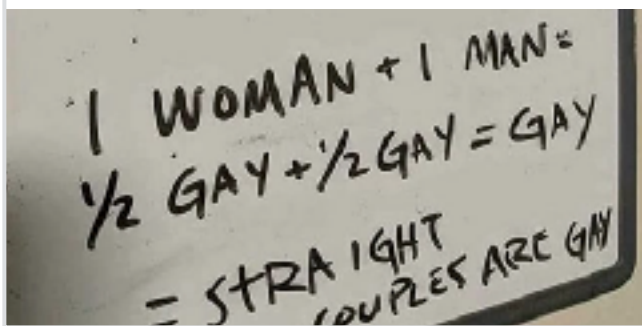 1 WOMAN + 1 MAN =
1/2 GAY + 1/2 GAY = GAY
= STRAIGHT
COUPLES ARE GAY